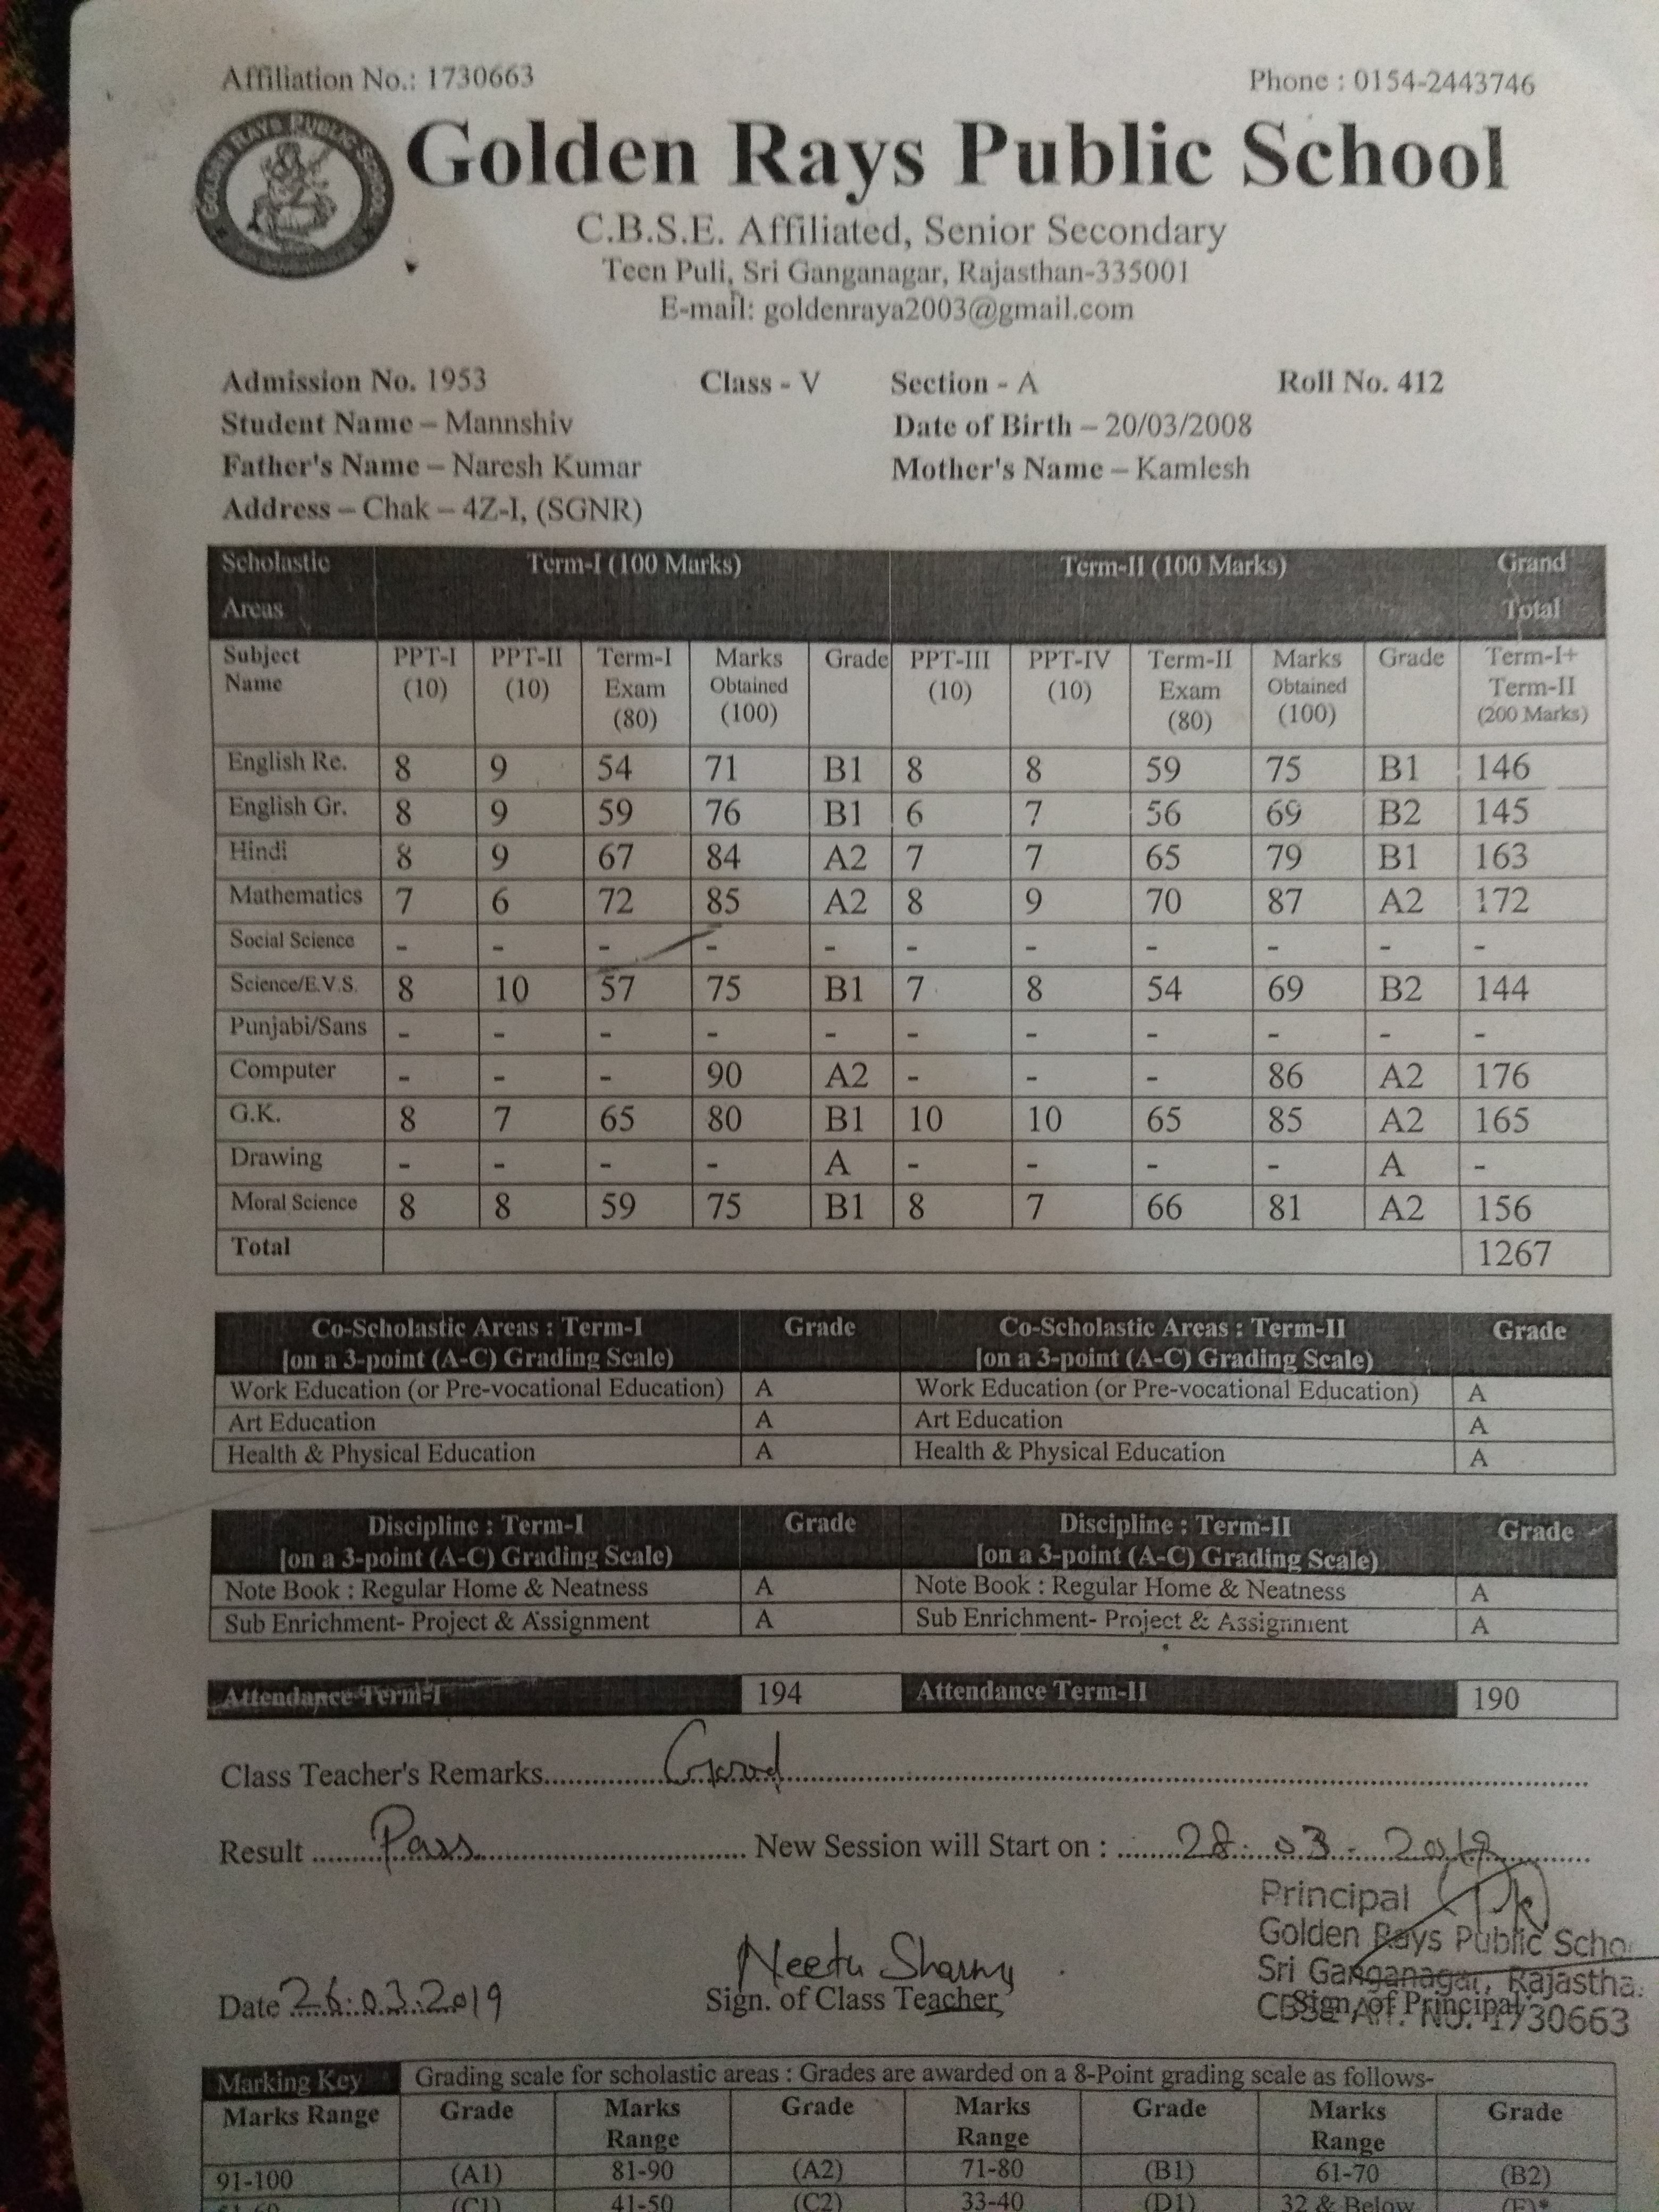 Affiliation No.: 1730663 Phone : 0154-2443746
GOLDEN RAYS PUBLIC SCHOOL
Golden Rays Public School
C.B.S.E. Affiliated, Senior Secondary
Teen Puli, Sri Ganganagar, Rajasthan-335001
E-mail: goldenraya2003@gmail.com
Admission No. 1953 Class - V Section - A Roll No. 412
Student Name – Mannshiv Date of Birth – 20/03/2008
Father's Name – Naresh Kumar Mother's Name – Kamlesh
Address – Chak – 4Z-I, (SGNR)
Scholastic Areas Term-I (100 Marks) Term-II (100 Marks) Grand Total
Subject Name PPT-I (10) PPT-II (10) Term-I Exam (80) Marks Obtained (100) Grade PPT-III (10) PPT-IV (10) Term-II Exam (80) Marks Obtained (100) Grade Term-I+ Term-II (200 Marks)
English Re. 8 9 54 71 B1 8 8 59 75 B1 146
English Gr. 8 9 59 76 B1 6 7 56 69 B2 145
Hindi 8 9 67 84 A2 7 7 65 79 B1 163
Mathematics 7 6 72 85 A2 8 9 70 87 A2 172
Social Science - - - - - - - - - - -
Science/E.V.S. 8 10 57 75 B1 7 8 54 69 B2 144
Punjabi/Sans - - - - - - - - - - -
Computer - - - 90 A2 - - - 86 A2 176
G.K. 8 7 65 80 B1 10 10 65 85 A2 165
Drawing - - - - A - - - - A -
Moral Science 8 8 59 75 B1 8 7 66 81 A2 156
Total 1267
Co-Scholastic Areas : Term-I [on a 3-point (A-C) Grading Scale) Grade Co-Scholastic Areas : Term-II [on a 3-point (A-C) Grading Scale) Grade
Work Education (or Pre-vocational Education) A Work Education (or Pre-vocational Education) A
Art Education A Art Education A
Health & Physical Education A Health & Physical Education A
Discipline : Term-I [on a 3-point (A-C) Grading Scale) Grade Discipline : Term-II [on a 3-point (A-C) Grading Scale) Grade
Note Book : Regular Home & Neatness A Note Book : Regular Home & Neatness A
Sub Enrichment- Project & Assignment A Sub Enrichment- Project & Assignment A
Attendance Term-I 194 Attendance Term-II 190
Class Teacher's Remarks.......... Good
Result .......... Pass .......... New Session will Start on : .......... 28.03.2019
Principal
Golden Rays Public Scho
Sri Ganganagar, Rajastha
CBSE Aff. No. 1730663
Neetu Sharma
Date 26.03.2019 Sign. of Class Teacher Sign. of Principal
Marking Key Grading scale for scholastic areas : Grades are awarded on a 8-Point grading scale as follows-
Marks Range Grade Marks Range Grade Marks Range Grade Marks Range Grade
91-100 (A1) 81-90 (A2) 71-80 (B1) 61-70 (B2)
(C1) 41-50 (C2) 33-40 (D1) 32 & Below